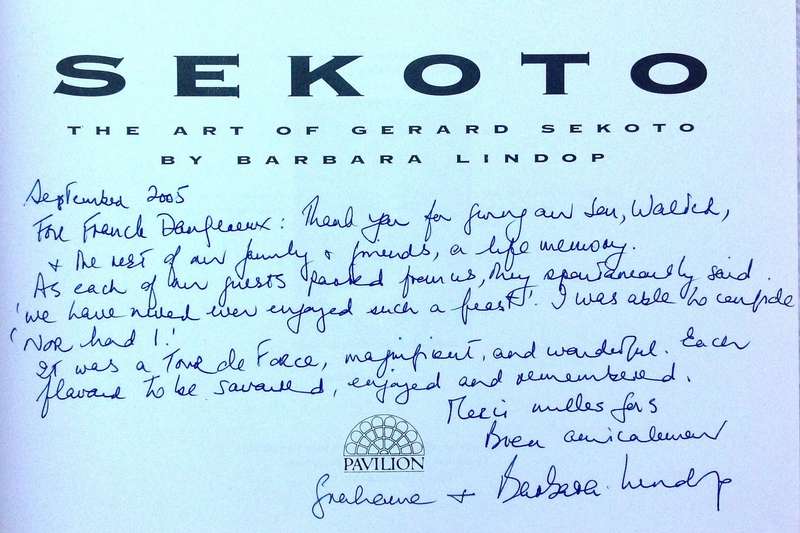 SEKOTO
THE ART OF GERARD SEKOTO
BY BARBARA LINDOP
September 2005
For Franck Dangereux: Thank you for giving our son, Walsch,
& the rest of our family & friends, a life memory.
As each of our guests parted from us, they spontaneously said
'we have never ever enjoyed such a feast'. I was able to confide
'Nor had I.'
It was a Tour de Force, magnificent, and wonderful. Each
flavour to be savoured, enjoyed and remembered.
Merci milles fois
Bien amicalement
PAVILION
Grahame & Barbara Lindop